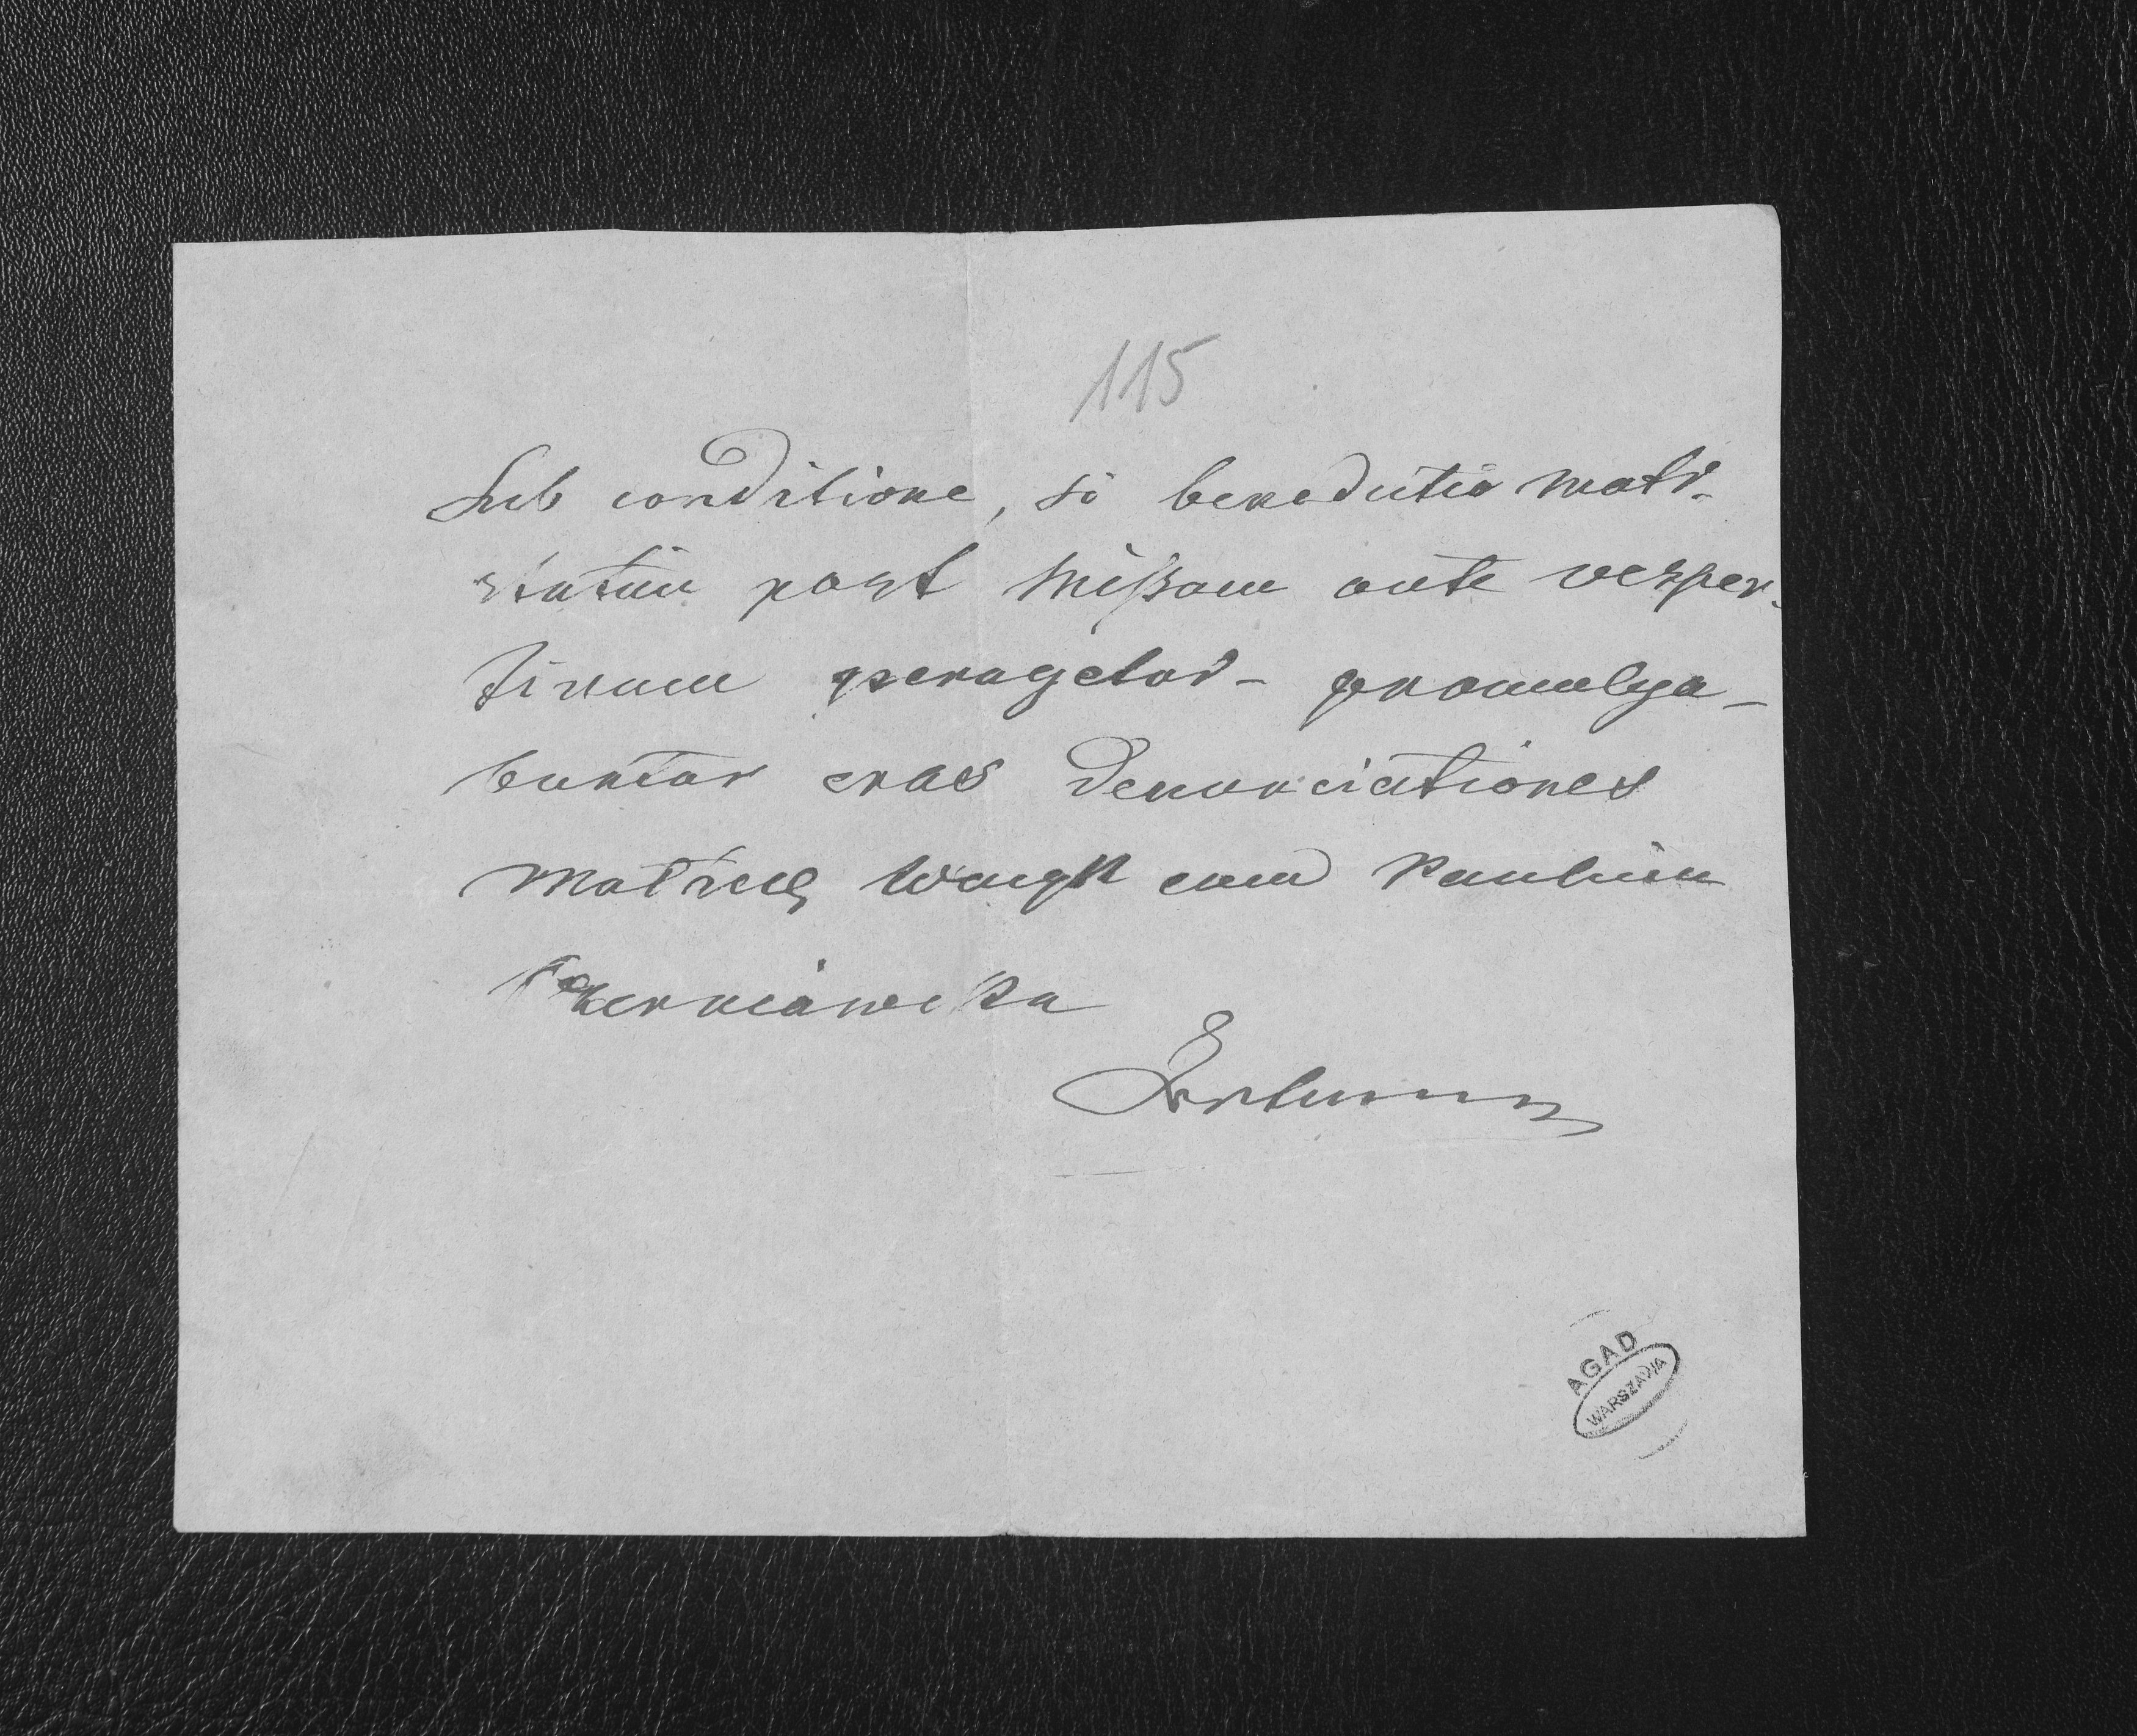 115
Sub conditione, si benedictio matr-
statim post Missam ante vesper-
tinam peragetur - promulga-
buntur cras denunciationes
cum Paulina
AGAD
WARSZAWA